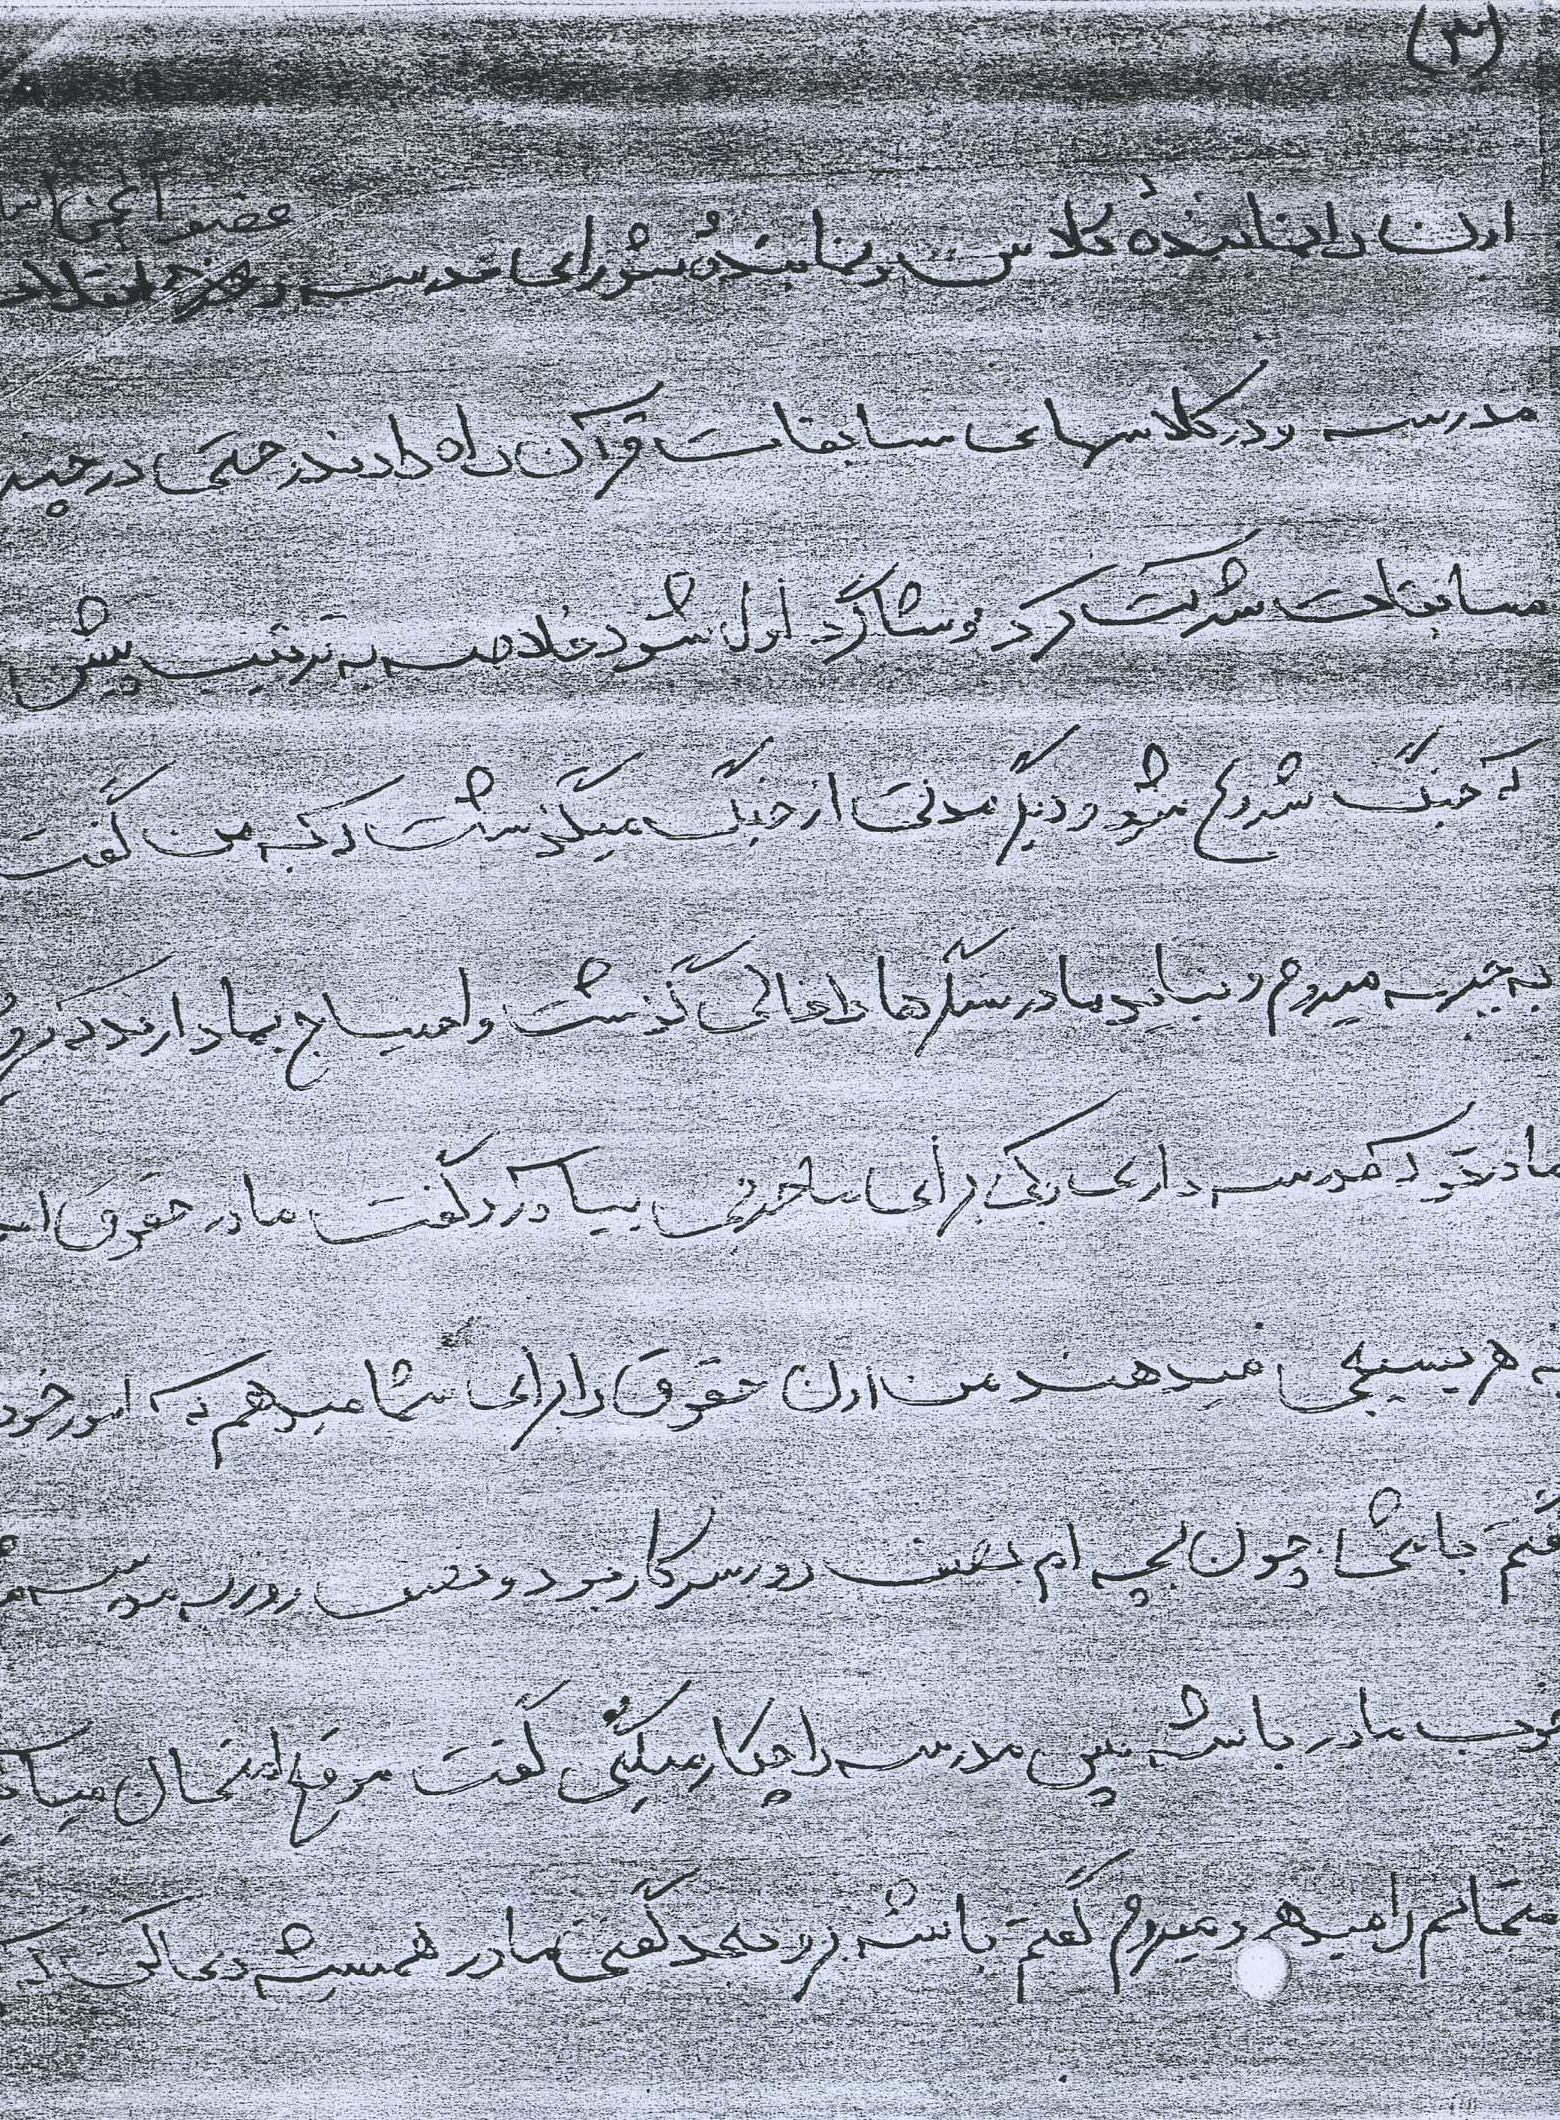 (۳)
عضو انجمن اسلا
این را نماینده کلاس و نماینده شورای مدرسه و
مدرسه و در کلاسهای مسابقات قرآن راه دادند حتی در چند
مسابقات شرکت کرد و شاگرد اول شود خلاصه به ترتیب پیش
که جنگ شروع شود دیگر مدتی از جنگ میگذشت که به من گفت
به جبهه میروم و بیاید مادر سنگرها خالی گذشت و احتیاج بما دارند
مادر تو که مدرسه داری برای ساختنی بیا کرد گفت مادر حقوق
به هر بسیجی میدهند من این حقوق را برای شما میدهم که امور خود
گفتم باشه چون بچه ام نصف روز سرکار بود و نصف روز به مدرسه
خوب مادر باشه پس مدرسه را چکار میکنی گفت موقع امتحان میا
متحانم را میدهم و میروم گفتم باشه برو بعد گفتی مادر همیشه دعا کن که